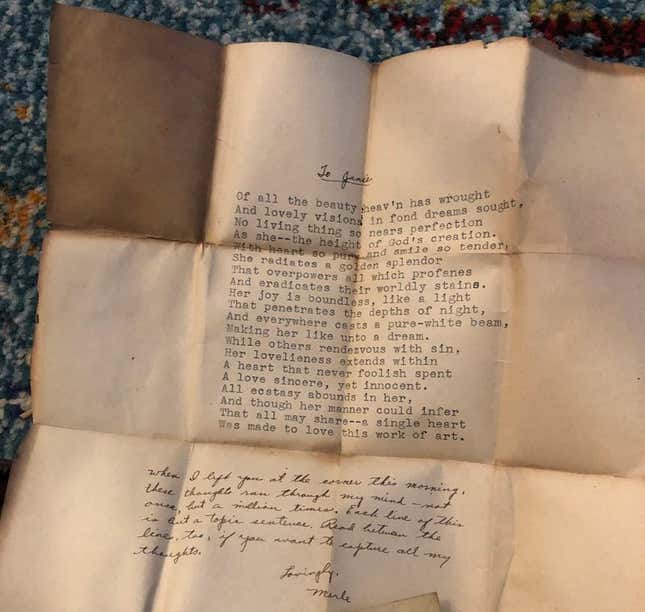 To Janie
Of all the beauty heav'n has wrought
And lovely visions in fond dreams sought,
No living thing so nears perfection
As she--the height of God's creation.
With heart so pure and smile so tender,
She radiates a golden splendor
That overpowers all which profanes
And eradicates their worldly stains.
Her joy is boundless, like a light
That penetrates the depths of night,
And everywhere casts a pure-white beam,
Making her like unto a dream.
While others rendezvous with sin,
Her lovelieness extends within
A heart that never foolish spent
A love sincere, yet innocent.
All ecstasy abounds in her,
And though her manner could infer
That all may share--a single heart
Was made to love this work of art.
When I left you at the corner this morning,
these thoughts ran through my mind—not
once, but a million times. Each line of this
is but a topic sentence. Read between the
lines, too, if you want to capture all my
thoughts.
Lovingly,
Merle